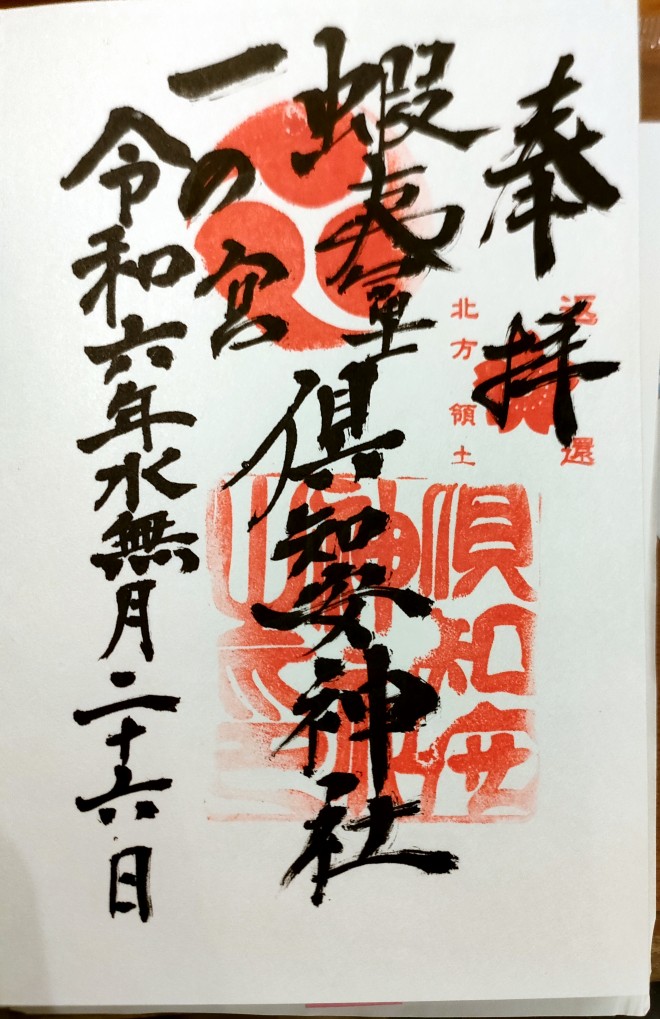 奉拝
返還
北方領土
蝦夷冨士
倶知安神社
一の宮
令和六年水無月二十六日
倶知安